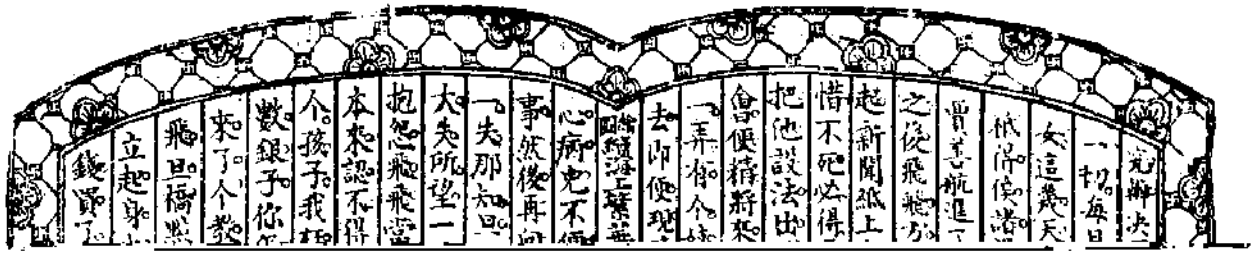 究辦夫
一切每日
女這幾天
祇得候諸
曾善航進
之後飛飛
起新聞紙上
惜不死必得
把他設法出
會便積將來
一弄有个
去即便現
繪圖續海上繁華
心病免不
事然後再向
一失那知旦
大失所望一
抱怨飛飛當
本來認不得
个孩子我
數銀子你
來了个教
飛旦橋
立起身
錢買了